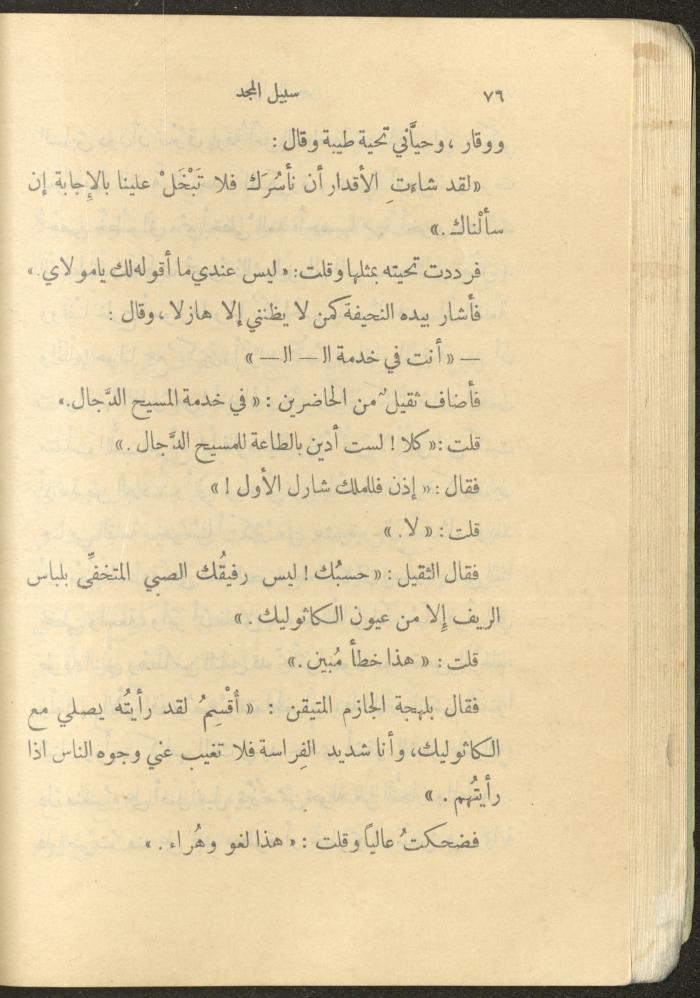 ٧٩ سبيل المجد
ووقار ، وحيَّاني تحية طيبة وقال :
« لقد شاءتِ الأقدار أن نأسُرَك فلا تَبْخَلْ علينا بالإِجابة إن
سألْناك . »
فرددت تحيته بمثلها وقلت : « ليس عندي ما أقوله لك يامولاي . »
فأشار بيده النحيفة كمن لا يظنني إلا هازلا ، وقال :
— « أنت في خدمة الـ — الـ — »
فأضاف ثقيلٌ من الحاضرين : « في خدمة المسيح الدَّجال . »
قلت : « كلا ! لست أدين بالطاعة للمسيح الدَّجال . »
فقال : « إذن فللملك شارل الأول ! »
قلت : « لا . »
فقال الثقيل : « حسبُك ! ليس رفيقُك الصبي المتخفِّي بلباس
الريف إِلا من عيون الكاثوليك . »
قلت : « هذا خطأ مُبين . »
فقال بلهجة الجازم المتيقن : « أُقْسِمُ لقد رأيتُه يصلي مع
الكاثوليك ، وأنا شديد الفِراسة فلا تغيب عني وجوه الناس اذا
رأيتُهم . »
فضحكتُ عالياً وقلت : « هذا لغو وهُراء . »